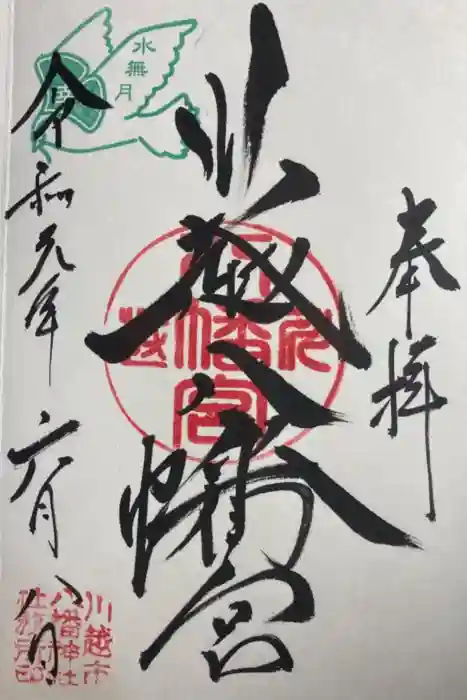 奉拝
川越八幡宮
令和元年六月八日
水無月
川越
八幡宮
川越市
八幡神社
社務所印